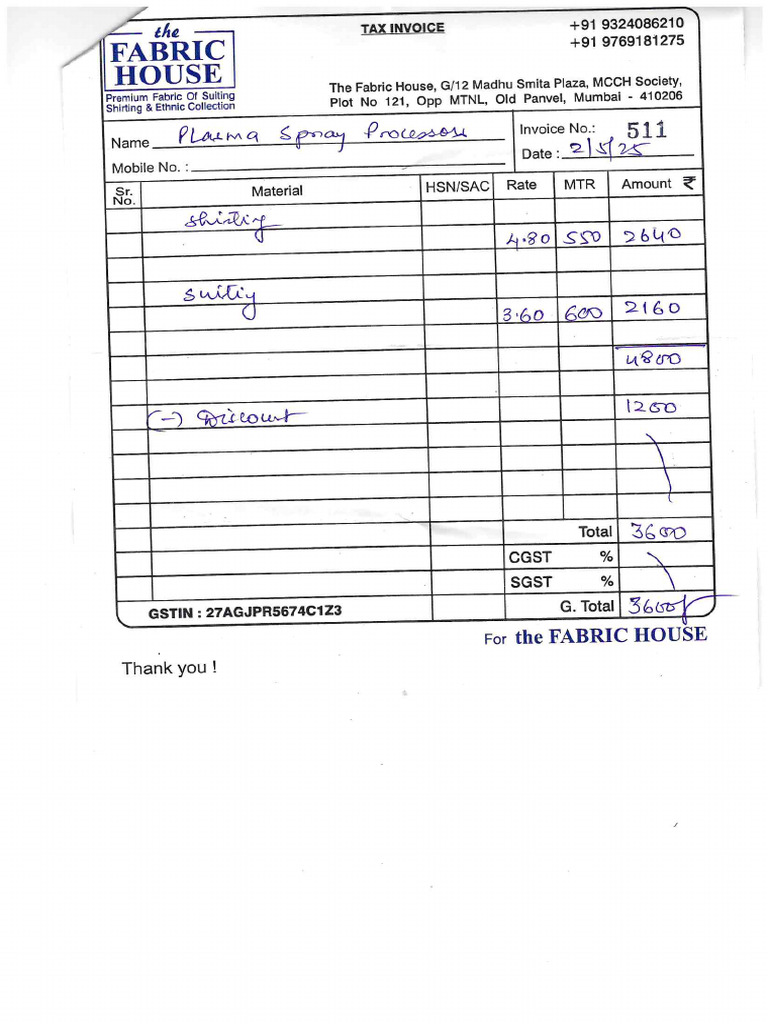 the
FABRIC
HOUSE
Premium Fabric Of Suiting
Shirting & Ethnic Collection
TAX INVOICE
+91 9324086210
+91 9769181275
The Fabric House, G/12 Madhu Smita Plaza, MCCH Society,
Plot No 121, Opp MTNL, Old Panvel, Mumbai - 410206
Name Plasma Spray Processors
Invoice No.: 511
Date : 2/5/25
Mobile No. :
Sr. No. Material HSN/SAC Rate MTR Amount ₹
Shirting
4.80 550 2640
Suiting
3.60 600 2160
4800
(-) Discount 1200
Total 3600
CGST %
SGST %
GSTIN : 27AGJPR5674C1Z3 G. Total 3600/
For the FABRIC HOUSE
Thank you !